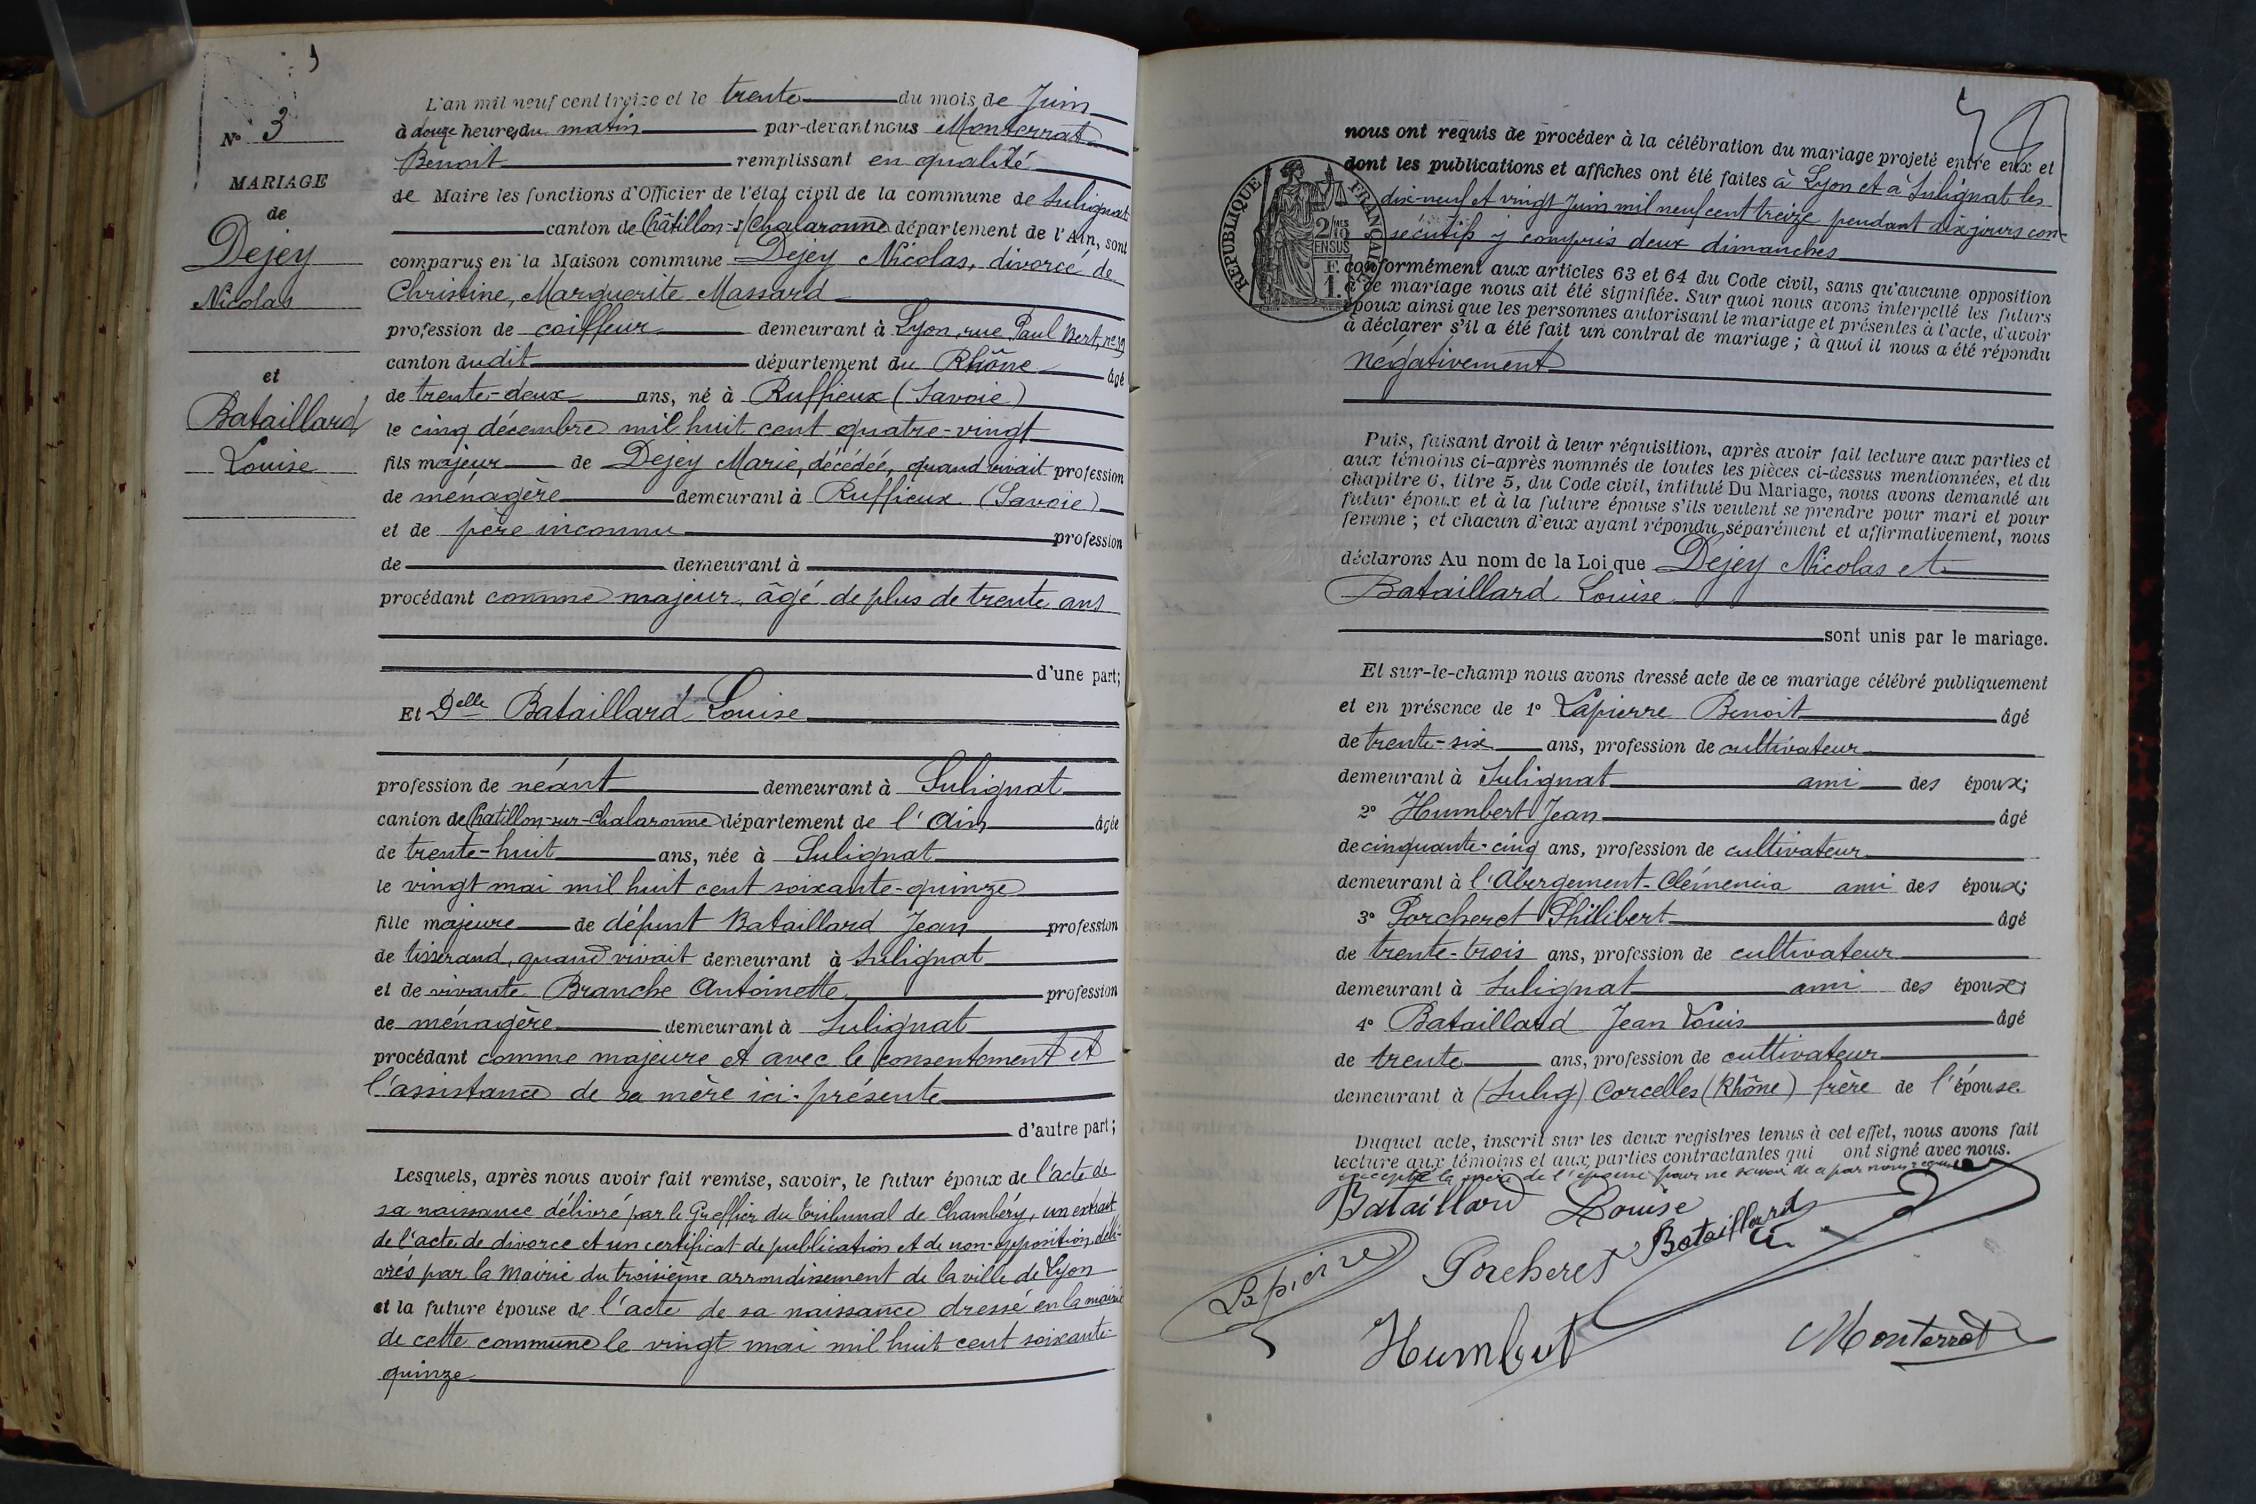 N° 3
MARIAGE
de
Dejey
Nicolas
et
Bataillard
Louise
L'an mil neuf cent treize et le trente du mois de Juin
à douze heures du matin par-devant nous Monterrat
Benoit remplissant en qualité
de Maire les fonctions d'Officier de l'état civil de la commune de Sulignat
canton de Châtillon-s/Chalaronne département de l'Ain, sont
comparus en la Maison commune Dejey Nicolas, divorcé de
Christine, Marguerite Massard
profession de coiffeur demeurant à Lyon, rue Paul Bert, n° 19
canton dudit département du Rhône âgé
de trente-deux ans, né à Ruffieux (Savoie)
le cinq décembre mil huit cent quatre-vingt
fils majeur de Dejey Marie, décédée, quand vivait profession
de ménagère demeurant à Ruffieux (Savoie)
et de père inconnu profession
de demeurant à
procédant comme majeur, âgé de plus de trente ans
d'une part;
Et Delle Bataillard Louise
profession de néant demeurant à Sulignat
canton de Châtillon-sur-Chalaronne département de l'Ain âgée
de trente-huit ans, née à Sulignat
le vingt mai mil huit cent soixante-quinze
fille majeure de défunt Bataillard Jean profession
de tisserand, quand vivait demeurant à Sulignat
et de vivante Branche Antoinette profession
de ménagère demeurant à Sulignat
procédant comme majeure et avec le consentement et
l'assistance de sa mère ici-présente
d'autre part;
Lesquels, après nous avoir fait remise, savoir, le futur époux de l'acte de
sa naissance délivré par le Greffier du Tribunal de Chambéry, un extrait
de l'acte de divorce et un certificat de publication et de non-opposition, déli-
vrés par la Mairie du troisième arrondissement de la ville de Lyon
et la future épouse de l'acte de sa naissance dressé en la mairie
de cette commune le vingt mai mil huit cent soixante-
quinze
nous ont requis de procéder à la célébration du mariage projeté entre eux et
dont les publications et affiches ont été faites à Lyon et à Sulignat les
dix-neuf et vingt Juin mil neuf cent treize pendant dix jours con-
sécutifs y compris deux dimanches
REPUBLIQUE FRANÇAISE
2/10 MES
EN SUS
F.
1.
conformément aux articles 63 et 64 du Code civil, sans qu'aucune opposition
à ce mariage nous ait été signifiée. Sur quoi nous avons interpellé les futurs
époux ainsi que les personnes autorisant le mariage et présentes à l'acte, d'avoir
à déclarer s'il a été fait un contrat de mariage; à quoi il nous a été répondu
négativement
Puis, faisant droit à leur réquisition, après avoir fait lecture aux parties et
aux témoins ci-après nommés de toutes les pièces ci-dessus mentionnées, et du
chapitre 6, titre 5, du Code civil, intitulé Du Mariage, nous avons demandé au
futur époux et à la future épouse s'ils veulent se prendre pour mari et pour
femme; et chacun d'eux ayant répondu séparément et affirmativement, nous
déclarons Au nom de la Loi que Dejey Nicolas et
Bataillard Louise
sont unis par le mariage.
Et sur-le-champ nous avons dressé acte de ce mariage célébré publiquement
et en présence de 1° Lapierre Benoit âgé
de trente-six ans, profession de cultivateur
demeurant à Sulignat ami des époux;
2° Humbert Jean âgé
de cinquante-cinq ans, profession de cultivateur
demeurant à l'Abergement-Clémencia ami des époux;
3° Porcheret Philibert âgé
de trente-trois ans, profession de cultivateur
demeurant à Sulignat ami des époux;
4° Bataillard Jean Louis âgé
de trente ans, profession de cultivateur
demeurant à (Sulig) Corcelles (Rhône) frère de l'épouse
Duquel acte, inscrit sur les deux registres tenus à cet effet, nous avons fait
lecture aux témoins et aux parties contractantes qui ont signé avec nous.
excepté la mère de l'épouse pour ne savoir de ce par nous requise
Bataillard Louise
Bataillard
Lapierre
Porcheret
Humbert
Monterrat